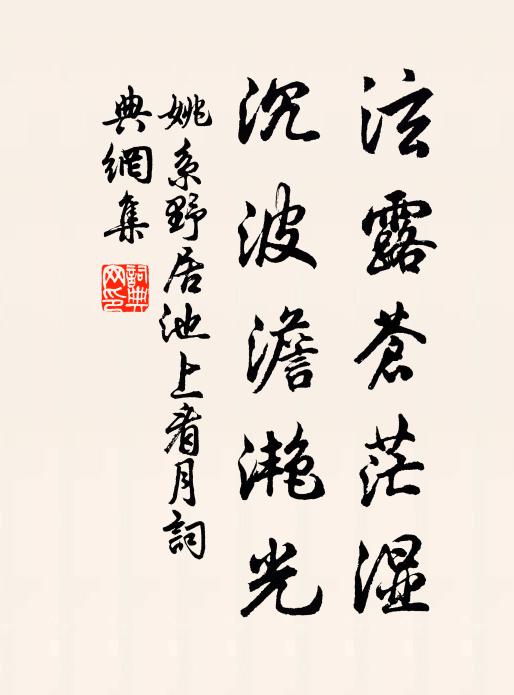 泫露蒼茫濕
沉波澹滟光
姚系野居池上看月詞
典網集
詞典
网印